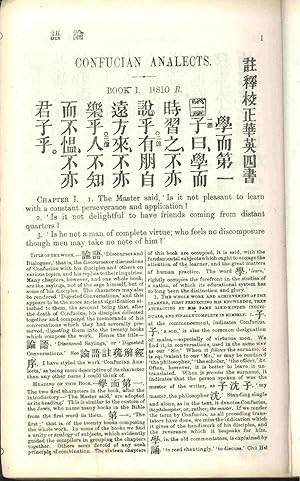 語論
1
CONFUCIAN ANALECTS.
BOOK I. HSIO R.
註釋校正華英四書
學而第一
子曰學而
時習之不亦
說乎有朋自
遠方來不亦
樂乎人不知
而不慍不亦
君子乎。
CHAPTER I. 1. The Master said, 'Is it not pleasant to learn
with a constant perseverance and application?
2. 'Is it not delightful to have friends coming from distant
quarters?
3. 'Is he not a man of complete virtue; who feels no discomposure
though men may take no note of him?'
TITLE OF THE WORK.—論語, 'Discourses and
Dialogues;' that is, the discourses or discussions
of Confucius with his disciples and others on
various topics, and his replies to their inquiries.
Many chapters, however, and one whole book,
are the sayings, not of the sage himself, but of
some of his disciples. The characters may also
be rendered 'Digested Conversations,' and this
appears to be the more ancient signification at-
tached to them, the account being that, after
the death of Confucius, his disciples collected
together and compared the memoranda of his
conversations which they had severally pre-
served, digesting them into the twenty books
which compose the work. Hence the title—
論語, 'Discussed Sayings,' or 'Digested
Conversations.' See 論語註疏解經
序. I have styled the work 'Confucian Ana-
lects,' as being more descriptive of the character
than any other name I could think of.
HEADING OF THIS BOOK.—學而第一.
The two first characters in the book, after the
introductory—'The Master said,' are adopted
as its heading. This is similar to the custom of
the Jews, who name many books in the Bible
from the first word in them. 第一, 'The
first;' that is, of the twenty books composing
the whole work. In some of the books we find
a unity or analogy of subjects, which evidently
guided the compilers in grouping the chapters
together. Others seem devoid of any such
principle of combination. The sixteen chapters
of this book are occupied, it is said, with the
fundamental subjects which ought to engage the
attention of the learner, and the great matters
of human practice. The word 學, 'learn,'
rightly occupies the forefront in the studies of
a nation, of which its educational system has
so long been the distinction and glory.
子,
at the commencement, indicates Confucius.
子, 'a son,' is also the common designation
of males,—especially of virtuous men. We
find it, in conversations, used in the same way
as our 'Sir.' When it follows the surname, it
is equivalent to our 'Mr.,' or may be rendered
'the philosopher,' 'the scholar,' 'the officer,' &c.
Often, however, it is better to leave it un-
translated. When it precedes the surname, it
indicates that the person spoken of was the
master of the writer, as 子沈子, 'my
master, the philosopher 沈.' Standing single
and alone, as in the text, it denotes Confucius,
the philosopher, or, rather, the master. If we render
the term by Confucius, as all preceding trans-
lators have done, we miss the indication which
it gives of the handiwork of his disciples, and
the reverence which it bespeaks for him.
學, in the old commentators, is explained by
'to read chantingly,' 'to discuss.' Chû Hsî